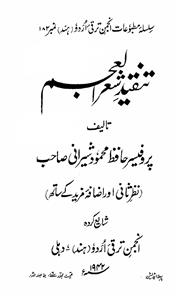 سلسلۂ مطبوعات انجمن ترقی اُردو (ہند) نمبر ۱۸۲
تنقید شعر العجم
تالیف
پروفیسر حافظ محمود شیرانی صاحب
(نظر ثانی اور اضافۂ مزید کے ساتھ)
شایع کردہ
انجمن ترقی اُردو (ہند)، دہلی
۱۹۴۲ء